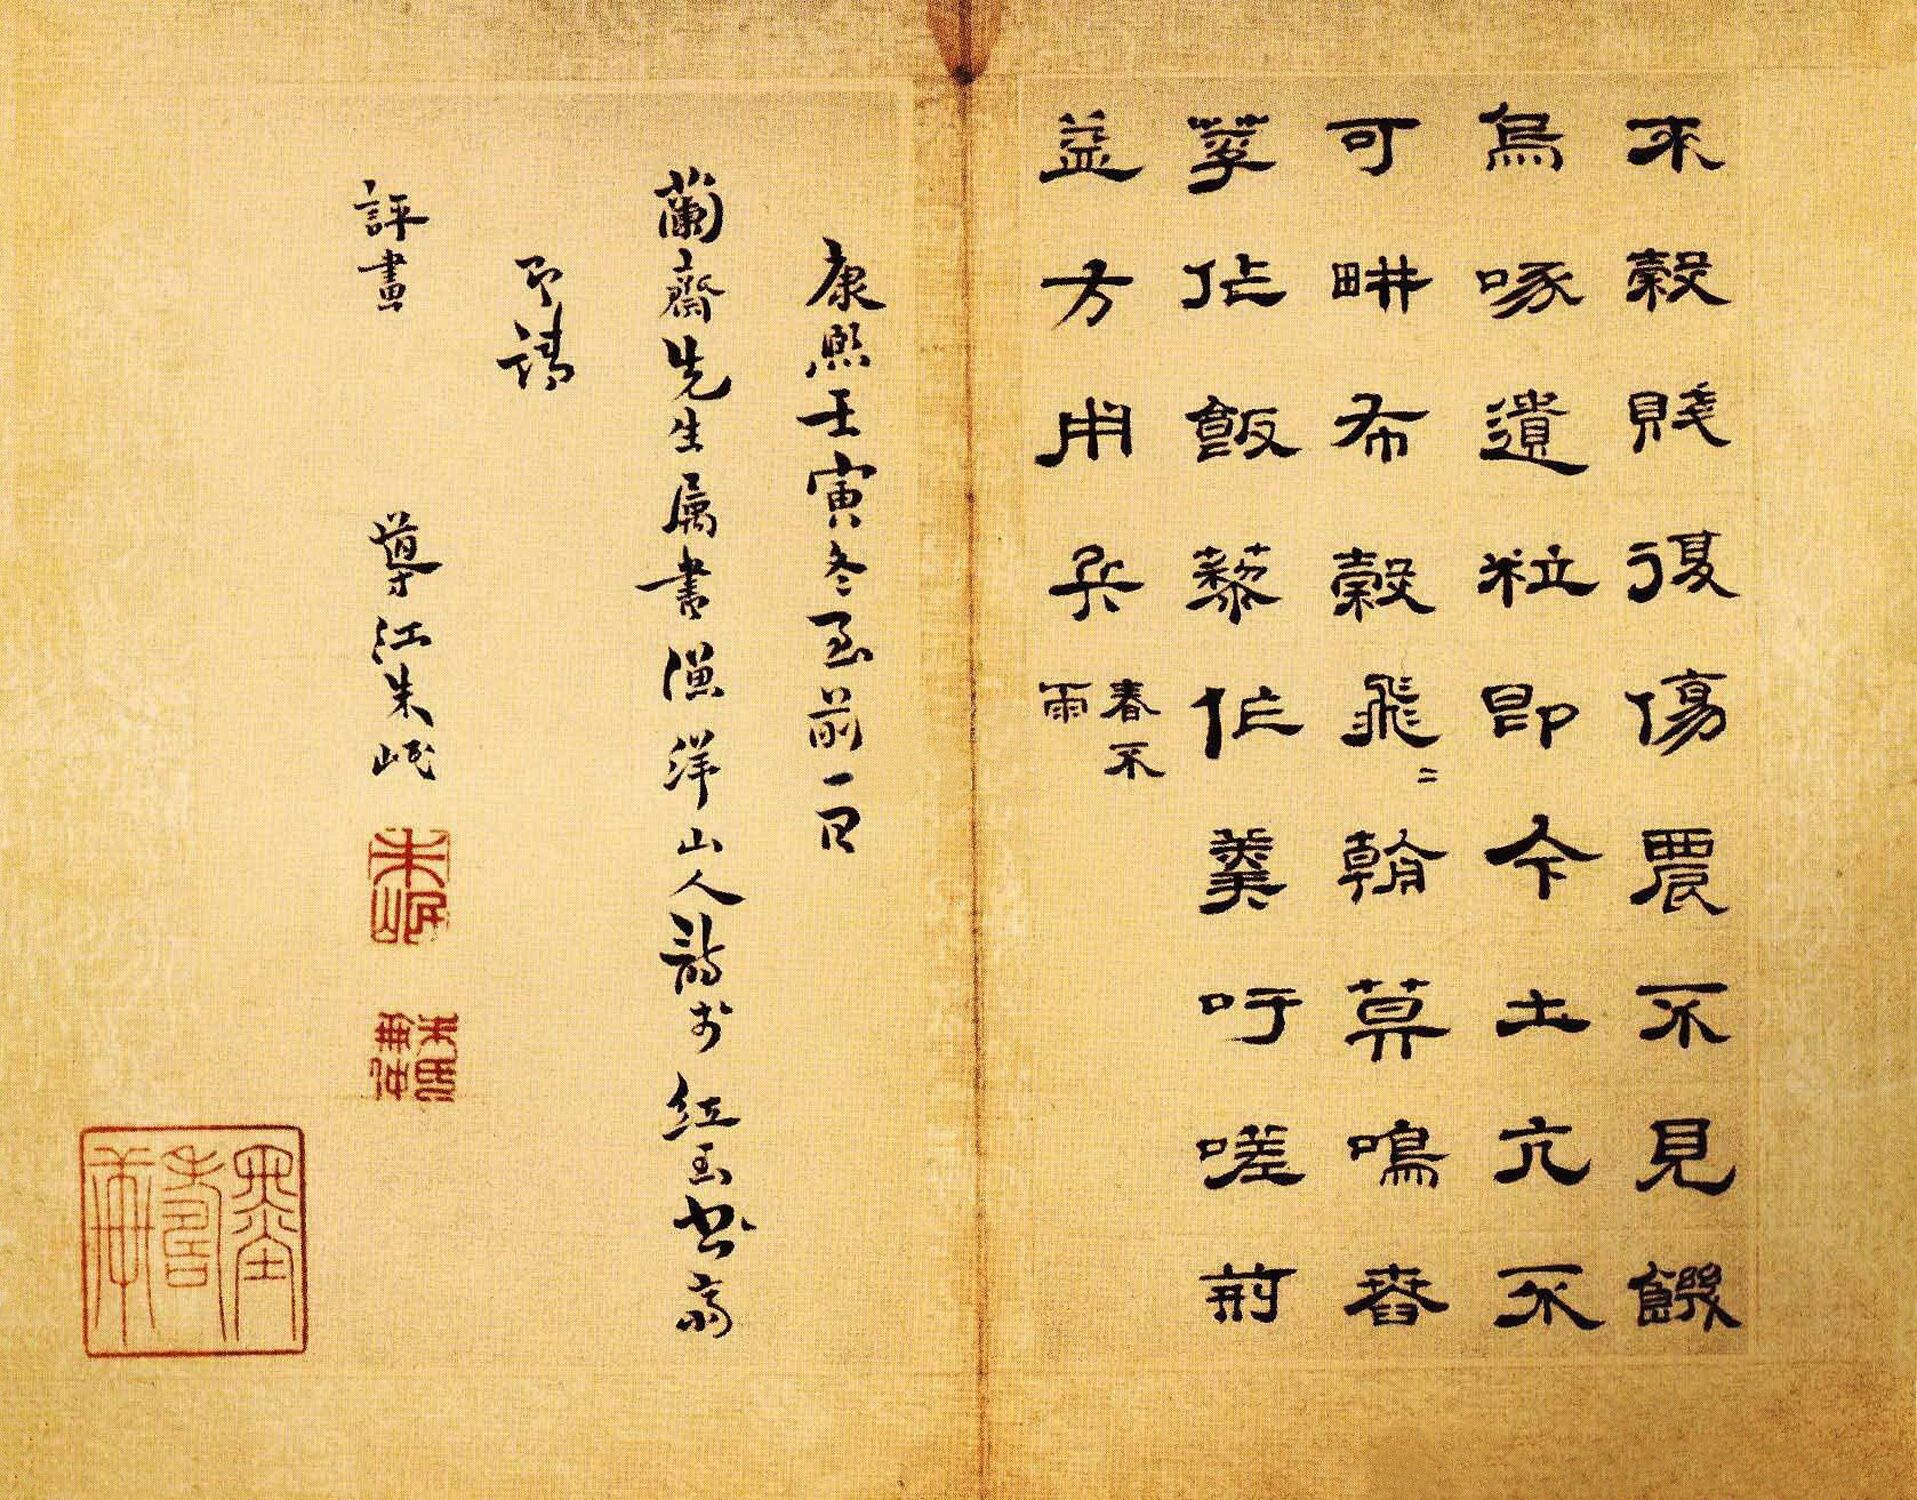 來穀賤復傷農不見饑
烏啄遺粒即今土亢不
可畊布穀飛〻翰莫鳴舂
莩作飯藜作羹吁嗟荊
益方用兵春不
雨
康熙壬寅冬至前一日
蘭齋先生属書漁洋山人詩於紅玉書齋
即請
評畫 導江朱岷
朱岷